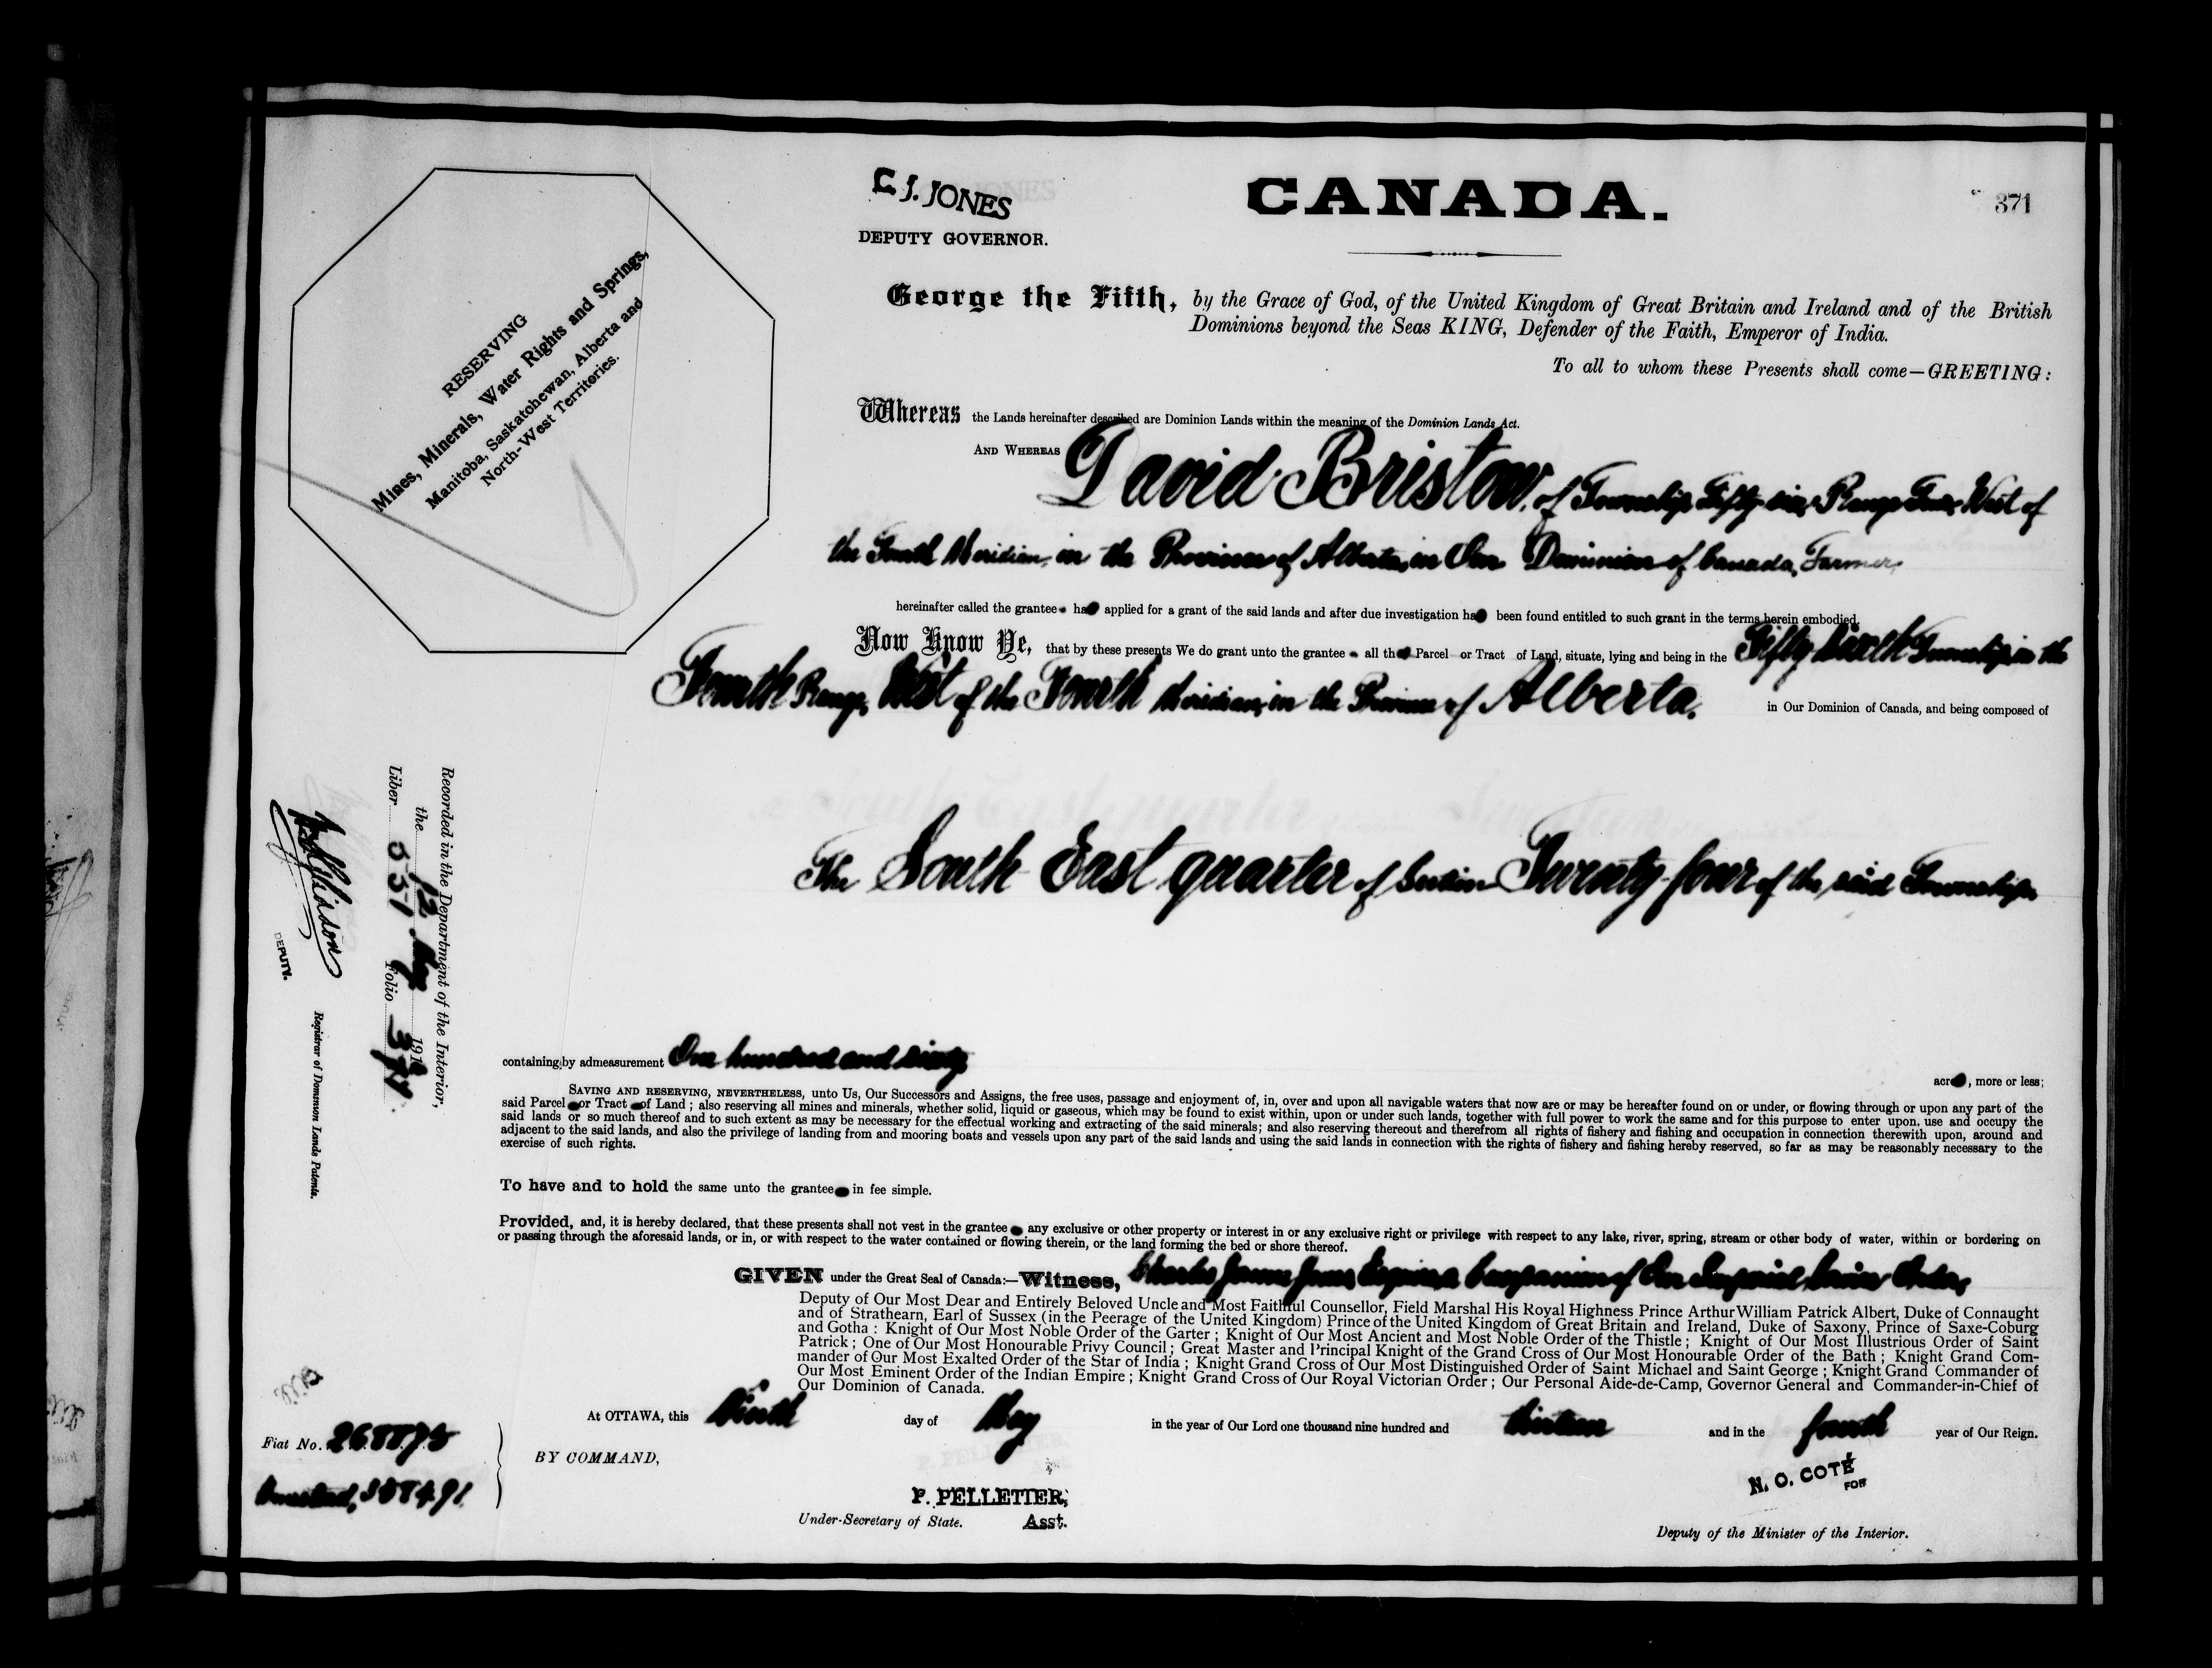 C. J. JONES
DEPUTY GOVERNOR.
CANADA.
371
RESERVING
Mines, Minerals, Water Rights and Springs,
Manitoba, Saskatchewan, Alberta and
North-West Territories.
George the Fifth, by the Grace of God, of the United Kingdom of Great Britain and Ireland and of the British
Dominions beyond the Seas KING, Defender of the Faith, Emperor of India.
To all to whom these Presents shall come—GREETING:
Whereas the Lands hereinafter described are Dominion Lands within the meaning of the Dominion Lands Act.
AND WHEREAS David Bristow, of Township Fifty-six, Range Four, West of
the Fourth Meridian, in the Province of Alberta, in Our Dominion of Canada, Farmer,
hereinafter called the grantee ha applied for a grant of the said lands and after due investigation ha been found entitled to such grant in the terms herein embodied.
Now Know Ye, that by these presents We do grant unto the grantee all th Parcel or Tract of Land, situate, lying and being in the Fifty sixth Township in the
Fourth Range, West of the Fourth Meridian, in the Province of Alberta, in Our Dominion of Canada, and being composed of
The South East quarter of Section Twenty-four of the said Township,
containing by admeasurement One hundred and sixty
acr , more or less;
SAVING AND RESERVING, NEVERTHELESS, unto Us, Our Successors and Assigns, the free uses, passage and enjoyment of, in, over and upon all navigable waters that now are or may be hereafter found on or under, or flowing through or upon any part of the
said Parcel or Tract of Land ; also reserving all mines and minerals, whether solid, liquid or gaseous, which may be found to exist within, upon or under such lands, together with full power to work the same and for this purpose to enter upon, use and occupy the
said lands or so much thereof and to such extent as may be necessary for the effectual working and extracting of the said minerals; and also reserving thereout and therefrom all rights of fishery and fishing and occupation in connection therewith upon, around and
adjacent to the said lands, and also the privilege of landing from and mooring boats and vessels upon any part of the said lands and using the said lands in connection with the rights of fishery and fishing hereby reserved, so far as may be reasonably necessary to the
exercise of such rights.
To have and to hold the same unto the grantee in fee simple.
Provided, and, it is hereby declared, that these presents shall not vest in the grantee any exclusive or other property or interest in or any exclusive right or privilege with respect to any lake, river, spring, stream or other body of water, within or bordering on
or passing through the aforesaid lands, or in, or with respect to the water contained or flowing therein, or the land forming the bed or shore thereof.
GIVEN under the Great Seal of Canada:—Witness, Charles James Jones, Esquire, a Companion of Our Imperial Service Order,
Deputy of Our Most Dear and Entirely Beloved Uncle and Most Faithful Counsellor, Field Marshal His Royal Highness Prince Arthur William Patrick Albert, Duke of Connaught
and of Strathearn, Earl of Sussex (in the Peerage of the United Kingdom) Prince of the United Kingdom of Great Britain and Ireland, Duke of Saxony, Prince of Saxe-Coburg
and Gotha : Knight of Our Most Noble Order of the Garter ; Knight of Our Most Ancient and Most Noble Order of the Thistle ; Knight of Our Most Illustrious Order of Saint
Patrick ; One of Our Most Honourable Privy Council ; Great Master and Principal Knight of the Grand Cross of Our Most Honourable Order of the Bath ; Knight Grand Com-
mander of Our Most Exalted Order of the Star of India ; Knight Grand Cross of Our Most Distinguished Order of Saint Michael and Saint George ; Knight Grand Commander of
Our Most Eminent Order of the Indian Empire ; Knight Grand Cross of Our Royal Victorian Order ; Our Personal Aide-de-Camp, Governor General and Commander-in-Chief of
Our Dominion of Canada.
At OTTAWA, this day of May in the year of Our Lord one thousand nine hundred and thirteen and in the fourth year of Our Reign.
BY COMMAND,
P. PELLETIER,
Under-Secretary of State. Asst.
N. O. COTÉ
FOR
Deputy of the Minister of the Interior.
Recorded in the Department of the Interior,
the 12 May 191
Liber 551 Folio 371
DEPUTY.
Registrar of Dominion Lands Patents.
Fiat No.